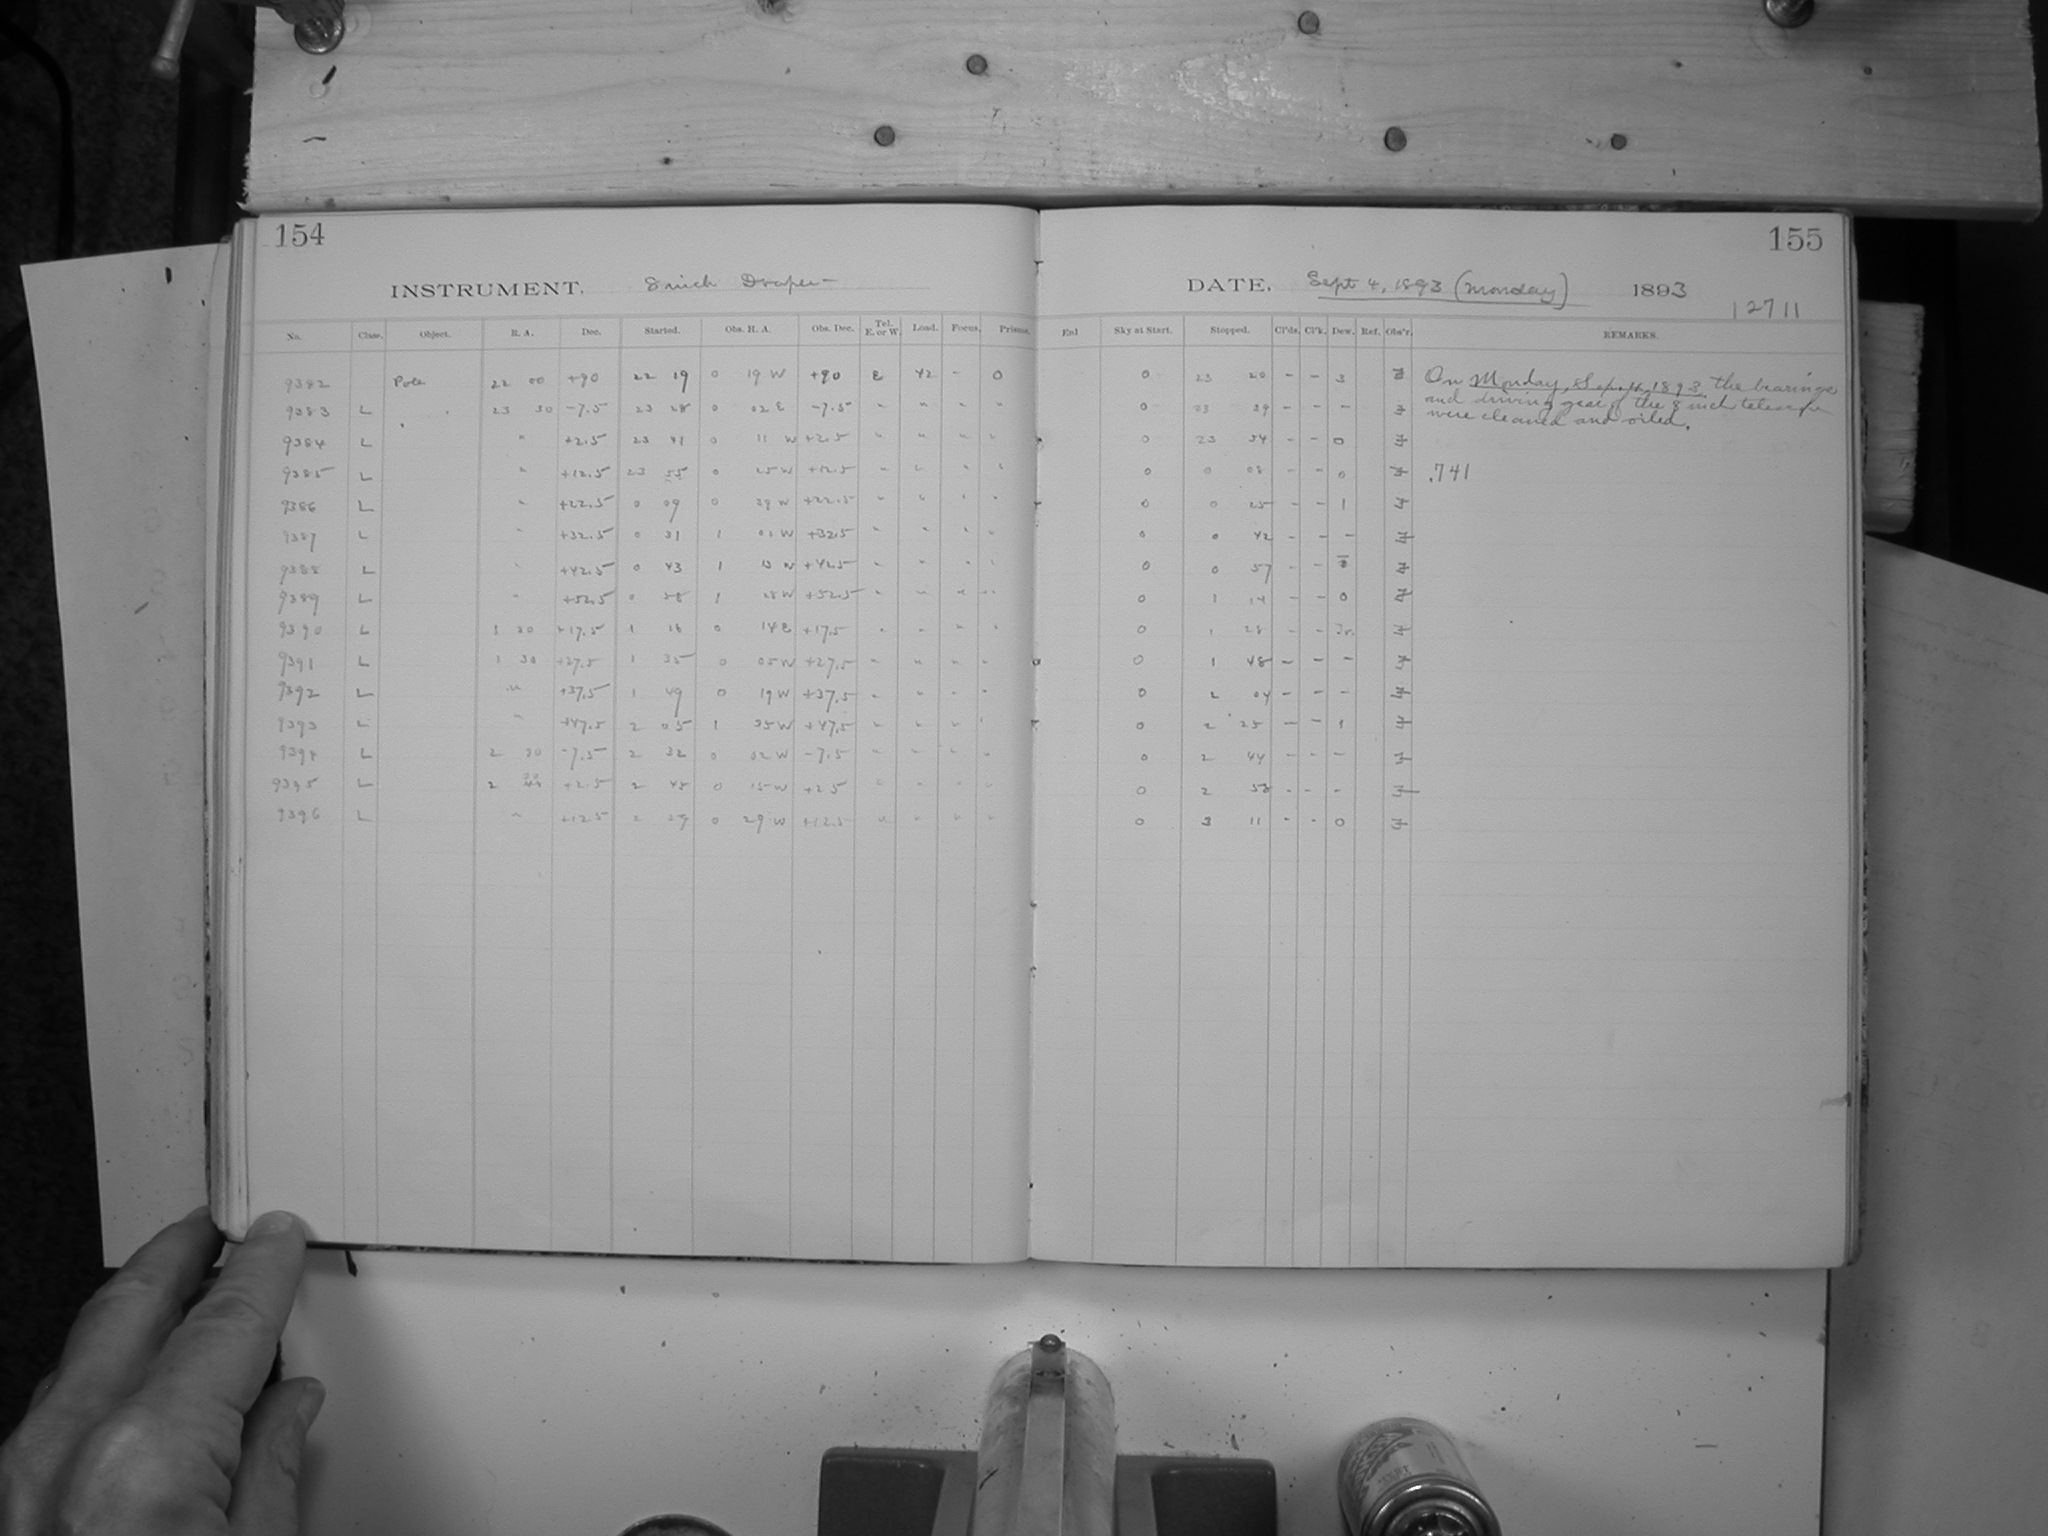 154
INSTRUMENT. 8 inch Draper
No. Class. Object. R. A. Dec. Started. Obs. H. A. Obs. Dec. Tel. E. or W. Load. Focus. Prisms.
9382 Pole 22 00 +90 22 19 0 19 W +90 E 42 - 0
9383 L 23 30 -7.5 23 28 0 02 E -7.5 " " " "
9384 L " +2.5 23 41 0 11 W +2.5 " " " "
9385 L " +12.5 23 55 0 25 W +12.5 " " " "
9386 L " +22.5 0 09 0 39 W +22.5 " " " "
9387 L " +32.5 0 31 1 01 W +32.5 " " " "
9388 L " +42.5 0 43 1 13 W +42.5 " " " "
9389 L " +52.5 0 58 1 28 W +52.5 " " " "
9390 L 1 30 +17.5 1 16 0 14 E +17.5 " " " "
9391 L 1 30 +27.5 1 35 0 05 W +27.5 " " " "
9392 L " +37.5 1 49 0 19 W +37.5 " " " "
9393 L " +47.5 2 05 1 35 W +47.5 " " " "
9394 L 2 30 -7.5 2 32 0 02 W -7.5 " " " "
9395 L 2 30 +2.5 2 45 0 15 W +2.5 " " " "
9396 L " +12.5 2 59 0 29 W +12.5 " " " "
155
DATE, Sept 4, 1893 (Monday) 1893
12711
End Sky at Start. Stopped. Cl'ds. Cl'k. Dew. Ref. Obs'r. REMARKS.
0 23 20 - - 3 On Monday, Sep. 4, 1893, the bearings
0 23 39 - - - and driving gear of the 8 inch telescope
were cleaned and oiled.
0 23 54 - - 0
0 0 08 - - 0 .741
0 0 25 - - 1
0 0 42 - - -
0 0 57 - -
0 1 14 - - 0
0 1 28 - -
0 1 48 - - -
0 2 04 - - -
0 2 25 - - 1
0 2 44 - - -
0 2 58 - - -
0 3 11 - - 0